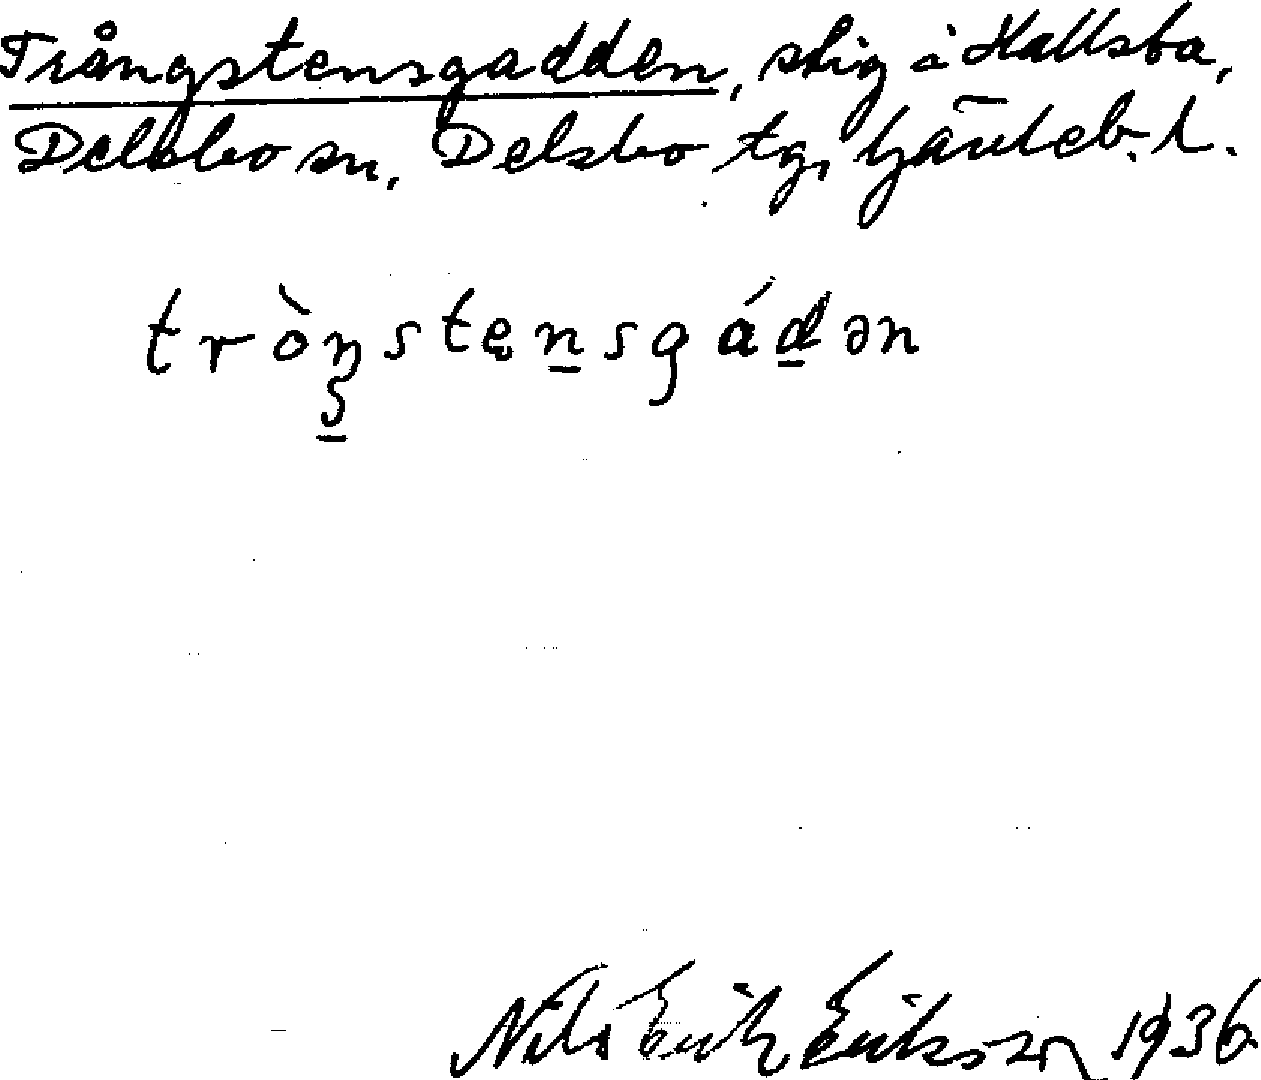 Trångstensgadden, stig i Hallsbo,
Delsbo sn, Delsbo tg, Gävleb. l.
tròŋstęnsgádən
Nils Erik Eriksson 1936